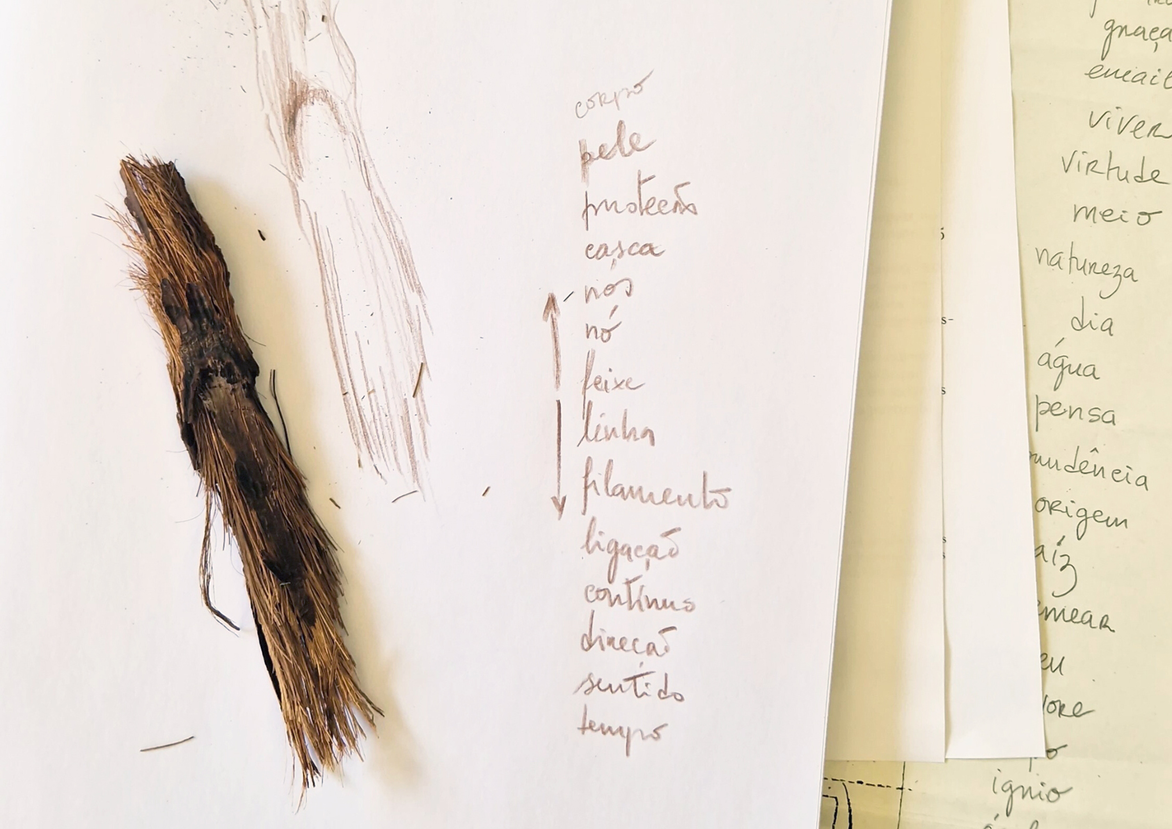 corpo
pele
proteção
casca
nós
nó
feixe
linha
filamento
ligação
contínuo
direção
sentido
tempo
viver
virtude
meio
natureza
dia
água
pensa
origem
aíz
emear
eu
ignio